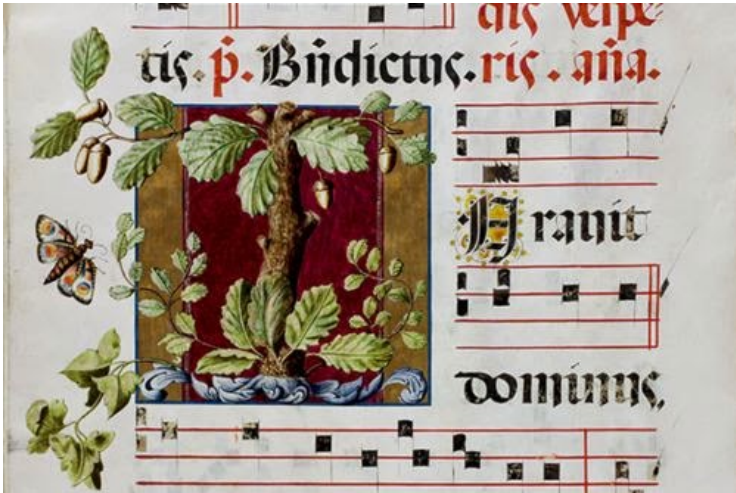 vespe-
tis. p̄. Bn̄dictus. ris. an̄a.
I Uravit
dominus,